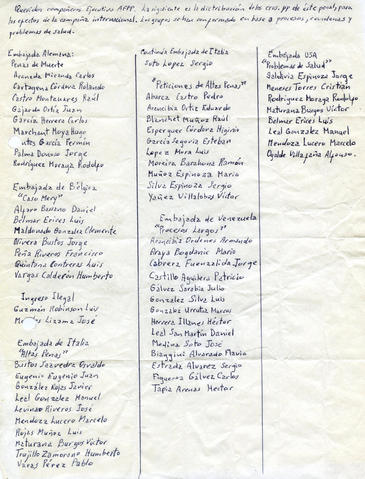 Queridos compañeros Ejecutivo AFPP. La siguiente es la distribución de los cros. pp de este penal, para
los efectos de la campaña internacional. Los grupos se han conformado en base a procesos, condenas y
problemas de salud.
Embajada Alemana:
Penas de Muerte
Araneda Miranda Carlos
Cartagena Córdova Rolando
Castro Montanares Raúl
Gajardo Ortiz Juan
García Herrera Carlos
Marchant Moya Hugo
García Fermín
Palma Donoso Jorge
Rodríguez Moraga Rodolfo
Embajada de Bélgica
"Caso Mery"
Alfaro Daniel
Belmar Erices Luis
Maldonado González Clemente
Rivera Bustos Jorge
Peña Riveros Francisco
Quintana Contreras Luis
Vargas Calderón Humberto
Ingreso Ilegal
Guzmán Robinson Luis
Lizama José
Embajada de Italia
"Altas Penas"
Bustos Saavedra Osvaldo
Eugenio Eugenio Juan
González Rojas Javier
Leal González Manuel
Levinao Riveros José
Mendoza Lucero Marcelo
Rojas Muñoz Luis
Maturana Burgos Víctor
Trujillo Zamorano Humberto
Varas Pérez Pablo
Continúa Embajada de Italia
Soto López Sergio
"Peticiones de Altas Penas"
Abarca Castro Pedro
Arancibia Ortiz Eduardo
Blanchet Muñoz Raúl
Esperguer Córdova Higinio
García Segovia Esteban
López Mora Luis
Moreira Barahona Ramón
Muñoz Espinoza Mario
Silva Espinoza Sergio
Yáñez Villalobos Víctor
Embajada de Venezuela
"Procesos Largos"
Arancibia Ordenes Armando
Araya Bogdanic Mario
Cabrera Fuenzalida Jorge
Castillo Aguilera Patricio
Gálvez Sarabia Julio
González Silva Luis
González Urrutia Marcos
Herrera Illanes Héctor
Leal San Martín Daniel
Medina Soto José
Biaggini Alvarado Flavia
Estrada Alvarez Sergio
Figueroa Gálvez Carlos
Tapia Arenas Héctor
Embajada USA
"Problemas de Salud"
Saldivia Espinoza Jorge
Meneses Torres Cristian
Rodríguez Moraga Rodolfo
Maturana Burgos Víctor
Belmar Erices Luis
Leal González Manuel
Mendoza Lucero Marcelo
Ugalde Villagaña Alfonso.